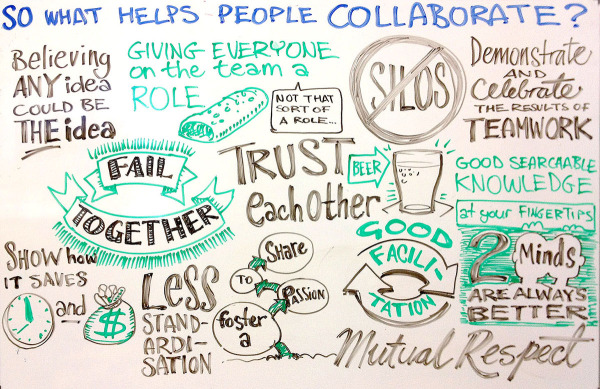 SO WHAT HELPS PEOPLE COLLABORATE?
Believing
ANY idea
COULD BE
THE idea
GIVING EVERYONE
on the team a
ROLE
NOT THAT
SORT OF
A ROLE...
SILOS
Demonstrate
AND
Celebrate
THE RESULTS OF
TEAMWORK
FAIL
TOGETHER
TRUST
each Other
BEER
GOOD SEARCHABLE
KNOWLEDGE
at your FINGERTIPS
SHOW how
IT SAVES
and
$
LESS
STAND-
ARDI-
SATION
foster
a
PASSION
TO
SHARE
GOOD
FACILI-
TATION
2 Minds
ARE ALWAYS
BETTER
Mutual Respect